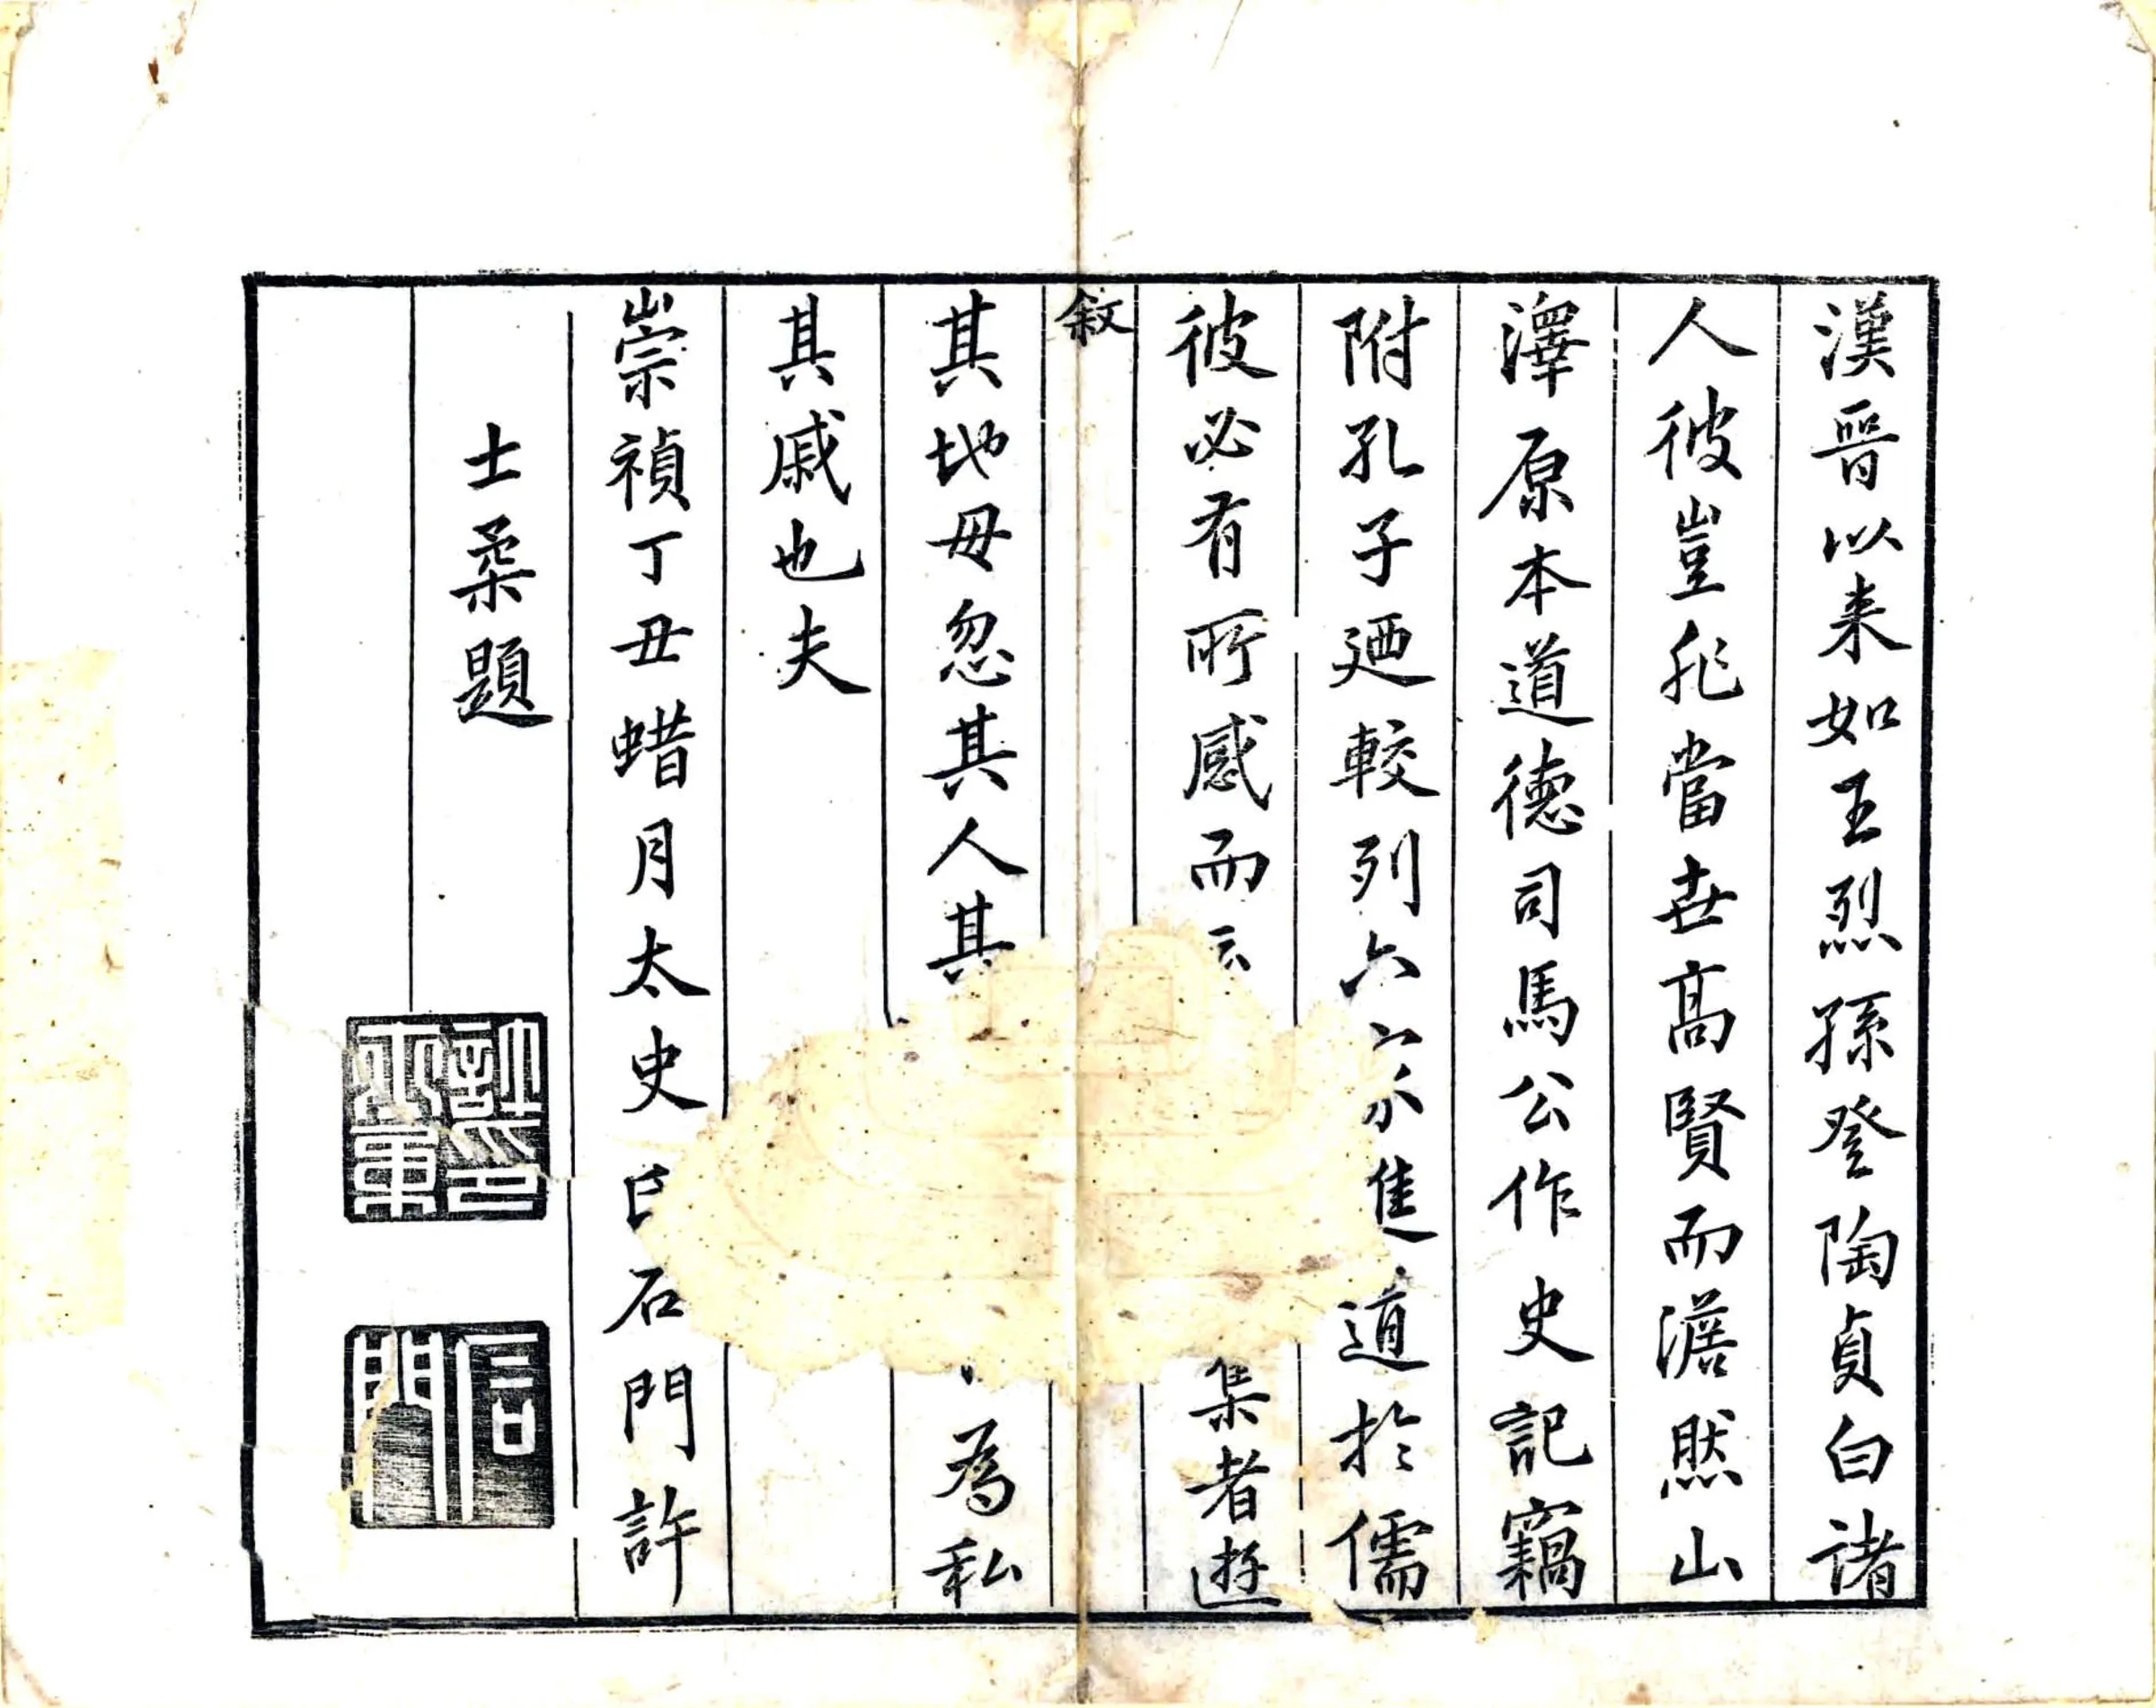 漢晉以来如王烈孫登陶貞白諸
人彼豈非當世髙賢而澹然山
澤原本道德司馬公作史記竊
附孔子廼較列六家進道於儒
彼必有所感而云集者遊
敘
其地毋忽其人其為私
其戚也夫
崇禎丁丑蜡月太史氏石門許
士柔題
許士柔印
石門